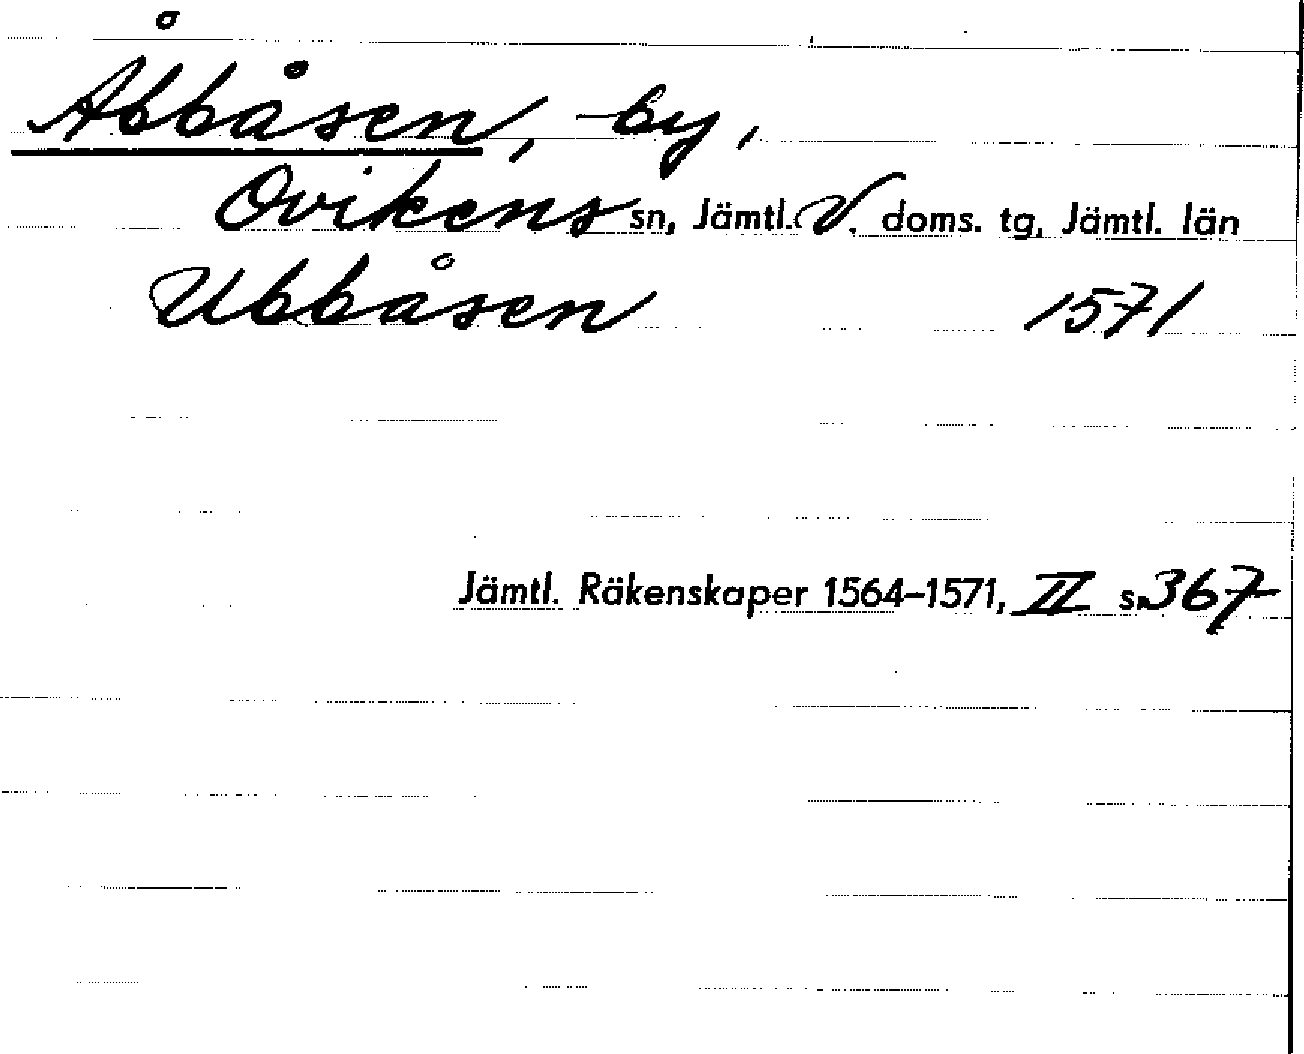 Åbbåsen, by,
Ovikens sn, Jämtl. V. doms. tg, Jämtl. län
Ubbåsen 1571
Jämtl. Räkenskaper 1564–1571, II s. 367